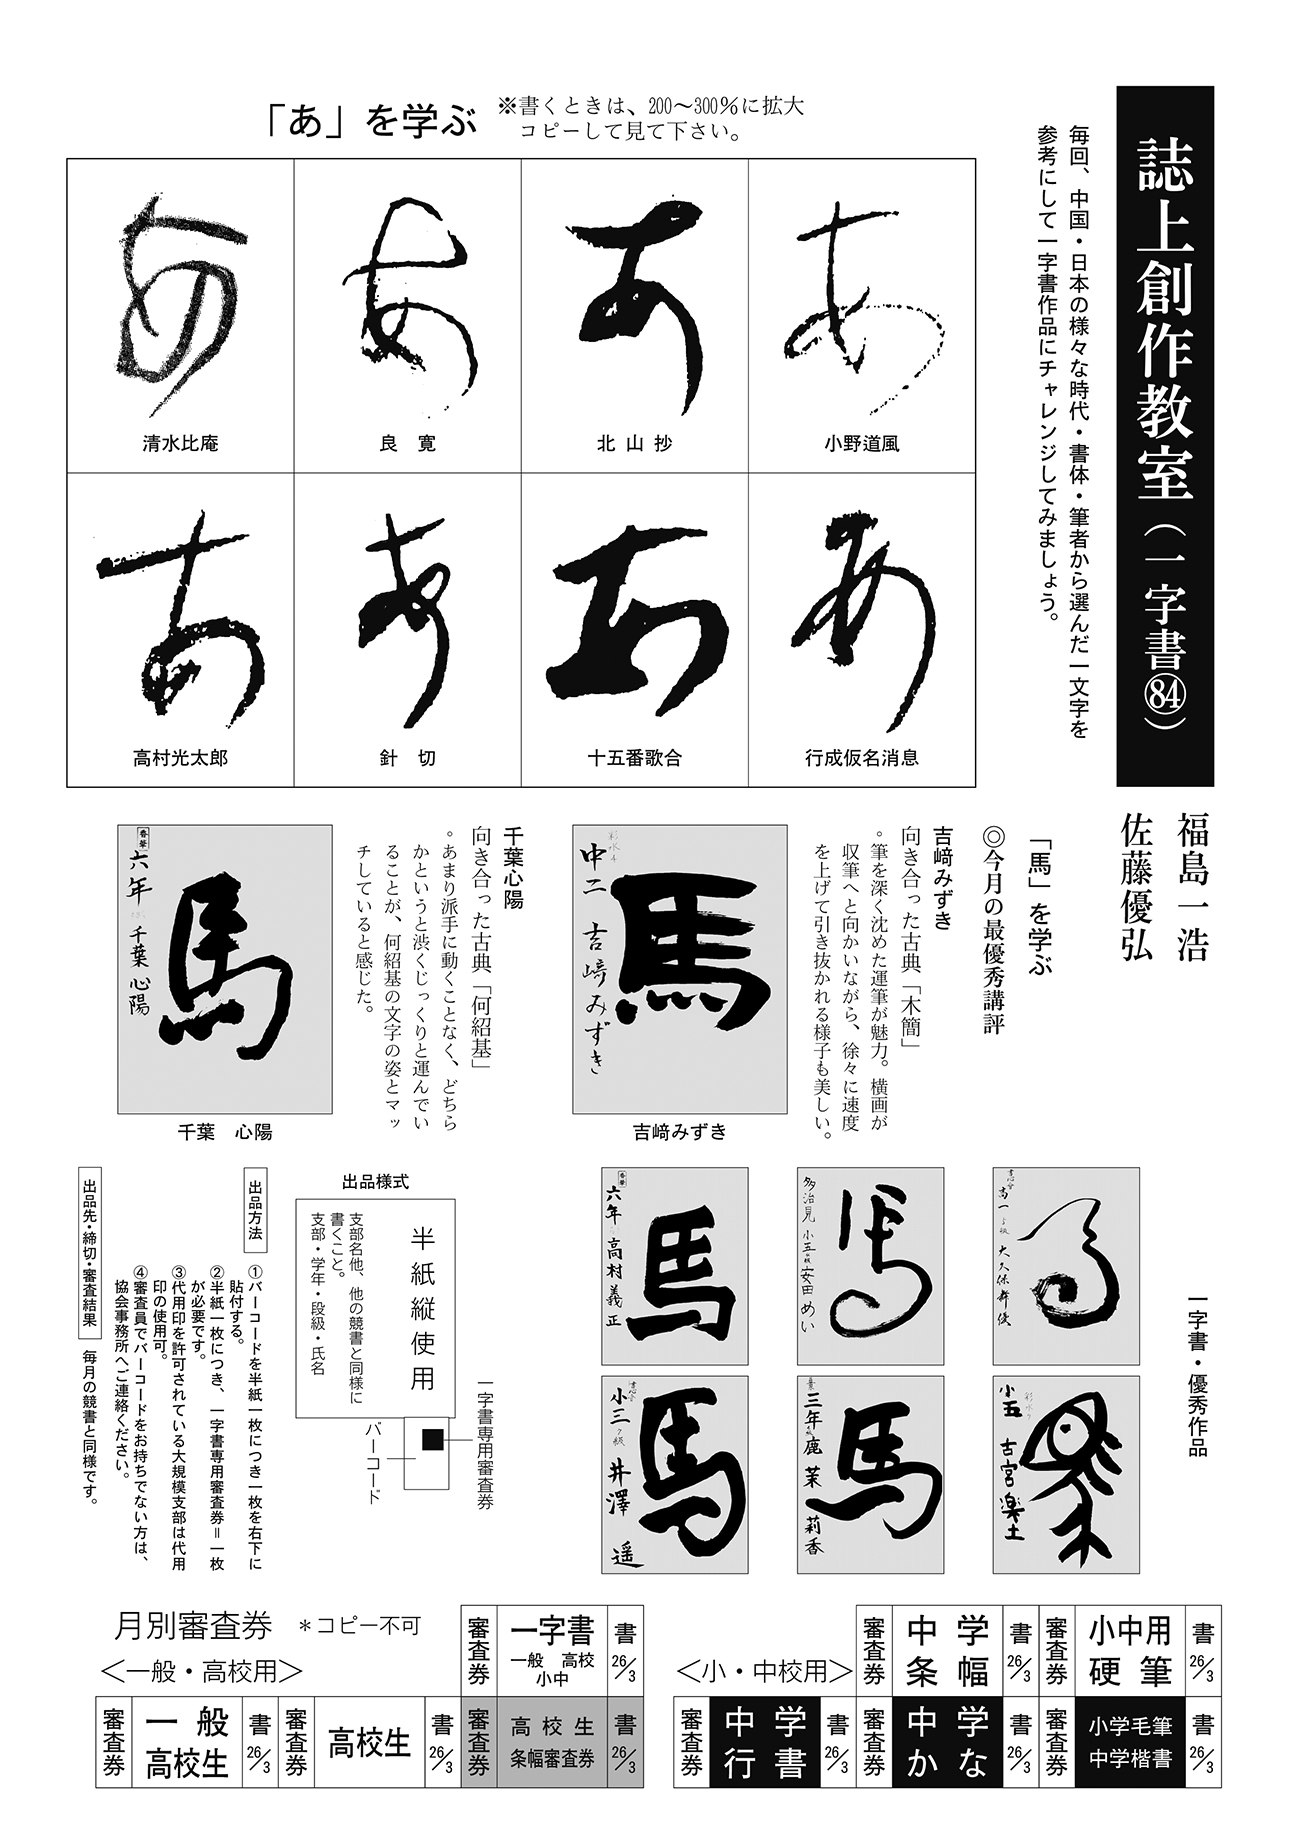 誌上創作教室（一字書84）
福島一浩
佐藤優弘
毎回、中国・日本の様々な時代・書体・筆者から選んだ一文字を
参考にして一字書作品にチャレンジしてみましょう。
「あ」を学ぶ
※書くときは、200〜300％に拡大
コピーして見て下さい。
あ
小野道風
あ
北山抄
あ
良寛
あ
清水比庵
あ
行成仮名消息
あ
十五番歌合
あ
針切
あ
高村光太郎
「馬」を学ぶ
◎今月の最優秀講評
吉﨑みずき
向き合った古典「木簡」
。筆を深く沈めた運筆が魅力。横画が
収筆へと向かいながら、徐々に速度
を上げて引き抜かれる様子も美しい。
馬
中二 吉﨑みずき
吉﨑みずき
千葉心陽
向き合った古典「何紹基」
。あまり派手に動くことなく、どちら
かというと渋くじっくりと運んでい
ることが、何紹基の文字の姿とマッ
チしていると感じた。
馬
六年 千葉心陽
千葉　心陽
一字書・優秀作品
馬
高一 大久保舞優
馬
多治見 小五 安田めい
馬
六年 高村義正
馬
小五 古宮楽土
馬
三年 鹿茉莉香
馬
小三 井澤遥
出品様式
半紙縦使用
支部名他、他の競書と同様に
書くこと。
支部・学年・段級・氏名
一字書専用審査券
バーコード
出品方法
①バーコードを半紙一枚につき一枚を右下に
貼付する。
②半紙一枚につき、一字書専用審査券＝一枚
が必要です。
③代用印を許可されている大規模支部は代用
印の使用可。
④審査員でバーコードをお持ちでない方は、
協会事務所へご連絡ください。
出品先・締切・審査結果
毎月の競書と同様です。
月別審査券　＊コピー不可
＜一般・高校用＞
審査券 一字書 一般　高校 小中 書 26/3
審査券 一般 高校生 書 26/3
審査券 高校生 書 26/3
審査券 高校生 条幅審査券 書 26/3
＜小・中校用＞
審査券 中学 条幅 書 26/3
審査券 小中用 硬筆 書 26/3
審査券 中学 行書 書 26/3
審査券 中学 かな 書 26/3
審査券 小学毛筆 中学楷書 書 26/3